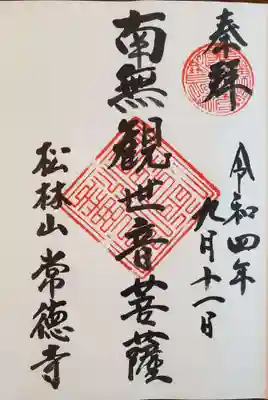 奉拜
令和四年
九月十一日
南無観世音菩薩
松林山常徳寺